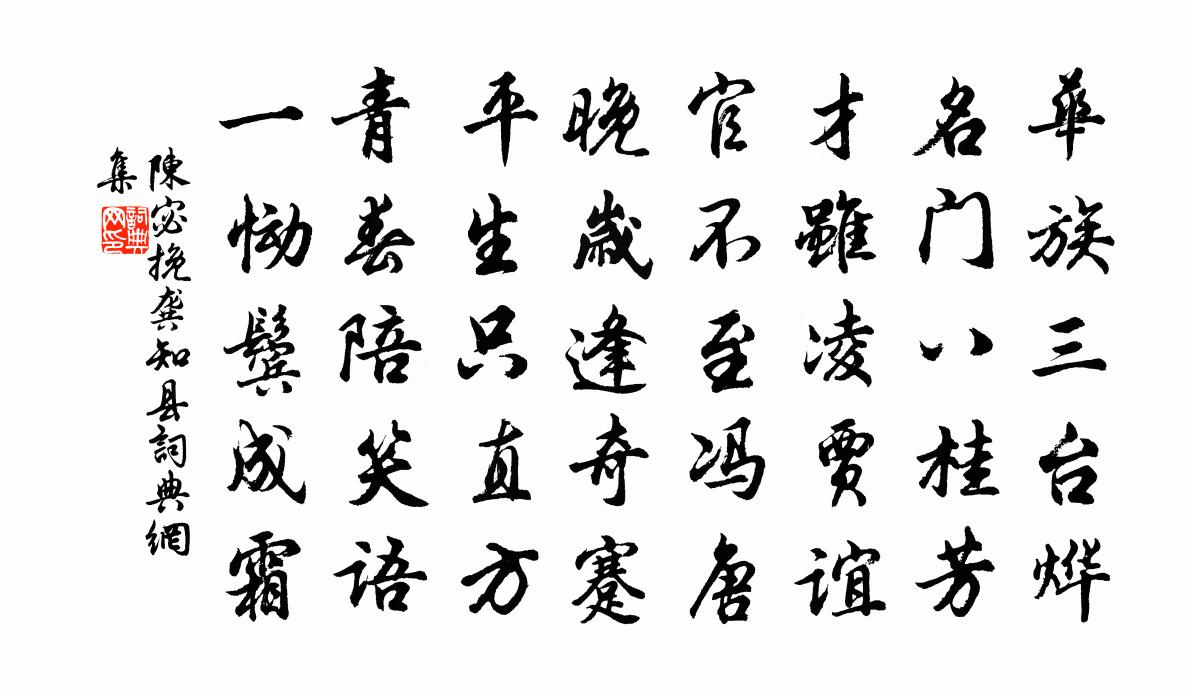 華族三台烨
名门八桂芳
才雖凌贾谊
官不至冯唐
晚歲逢奇蹇
平生只直方
青春陪笑语
一恸鬓成霜
陳宓挽龔知县詞典網
集
詞典
网印